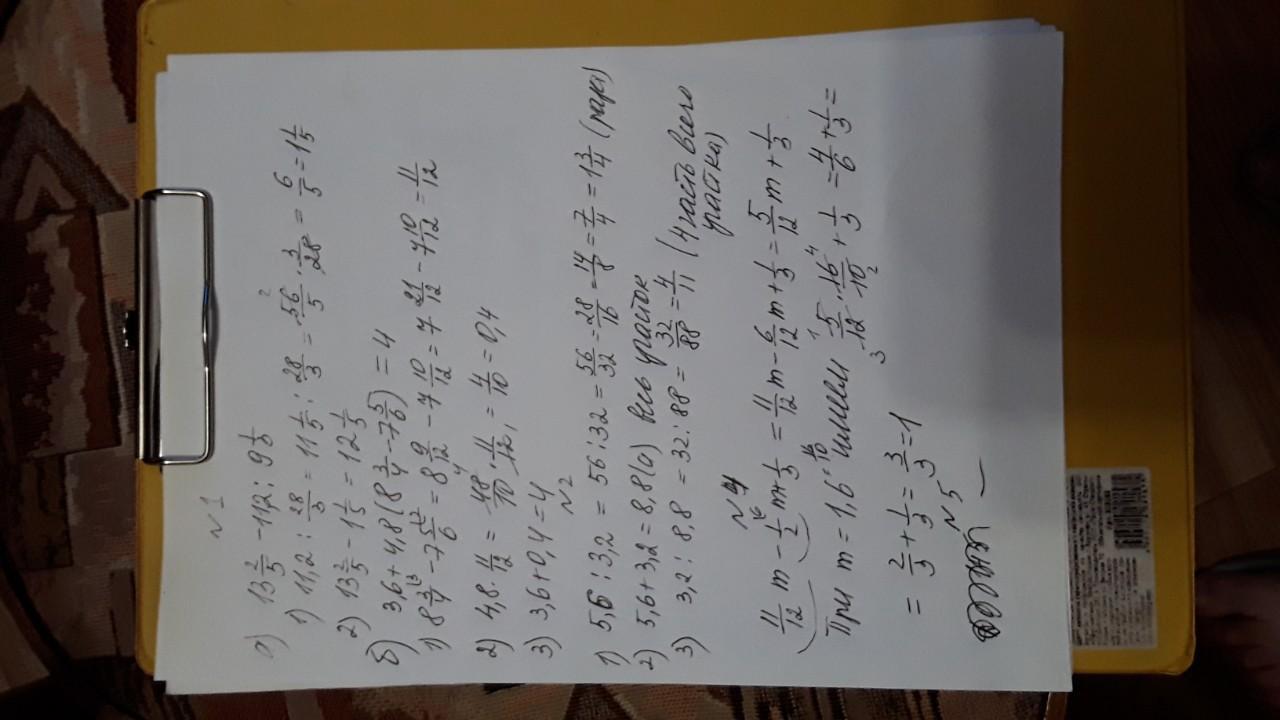 №1
а) 13 2/5 - 11,2 : 9 1/3
1) 11,2 : 28/3 = 11 1/5 : 28/3 = 56/5 · 3/28 = 6/5 = 1 1/5
2) 13 2/5 - 1 1/5 = 12 1/5
б) 3,6 + 4,8 (8 3/4 - 7 5/6) = 4
1) 8 3/4 - 7 5/6 = 8 9/12 - 7 10/12 = 7 21/12 - 7 10/12 = 11/12
2) 4,8 · 11/12 = 48/10 · 11/12 = 4/10 = 0,4
3) 3,6 + 0,4 = 4
№2
1) 5,6 : 3,2 = 56 : 32 = 56/32 = 28/16 = 14/8 = 7/4 = 1 3/4 (раза)
2) 5,6 + 3,2 = 8,8 (а) весь участок
3) 3,2 : 8,8 = 32 : 88 = 32/88 = 4/11 (4 часть всего
участка)
№4
11/12 m - 1/2 m + 1/3 = 11/12 m - 6/12 m + 1/3 = 5/12 m + 1/3
При m = 1,6 = 16/10 имеем 5/12 · 16/10 + 1/3 = 4/6 + 1/3 =
= 2/3 + 1/3 = 3/3 = 1
№5